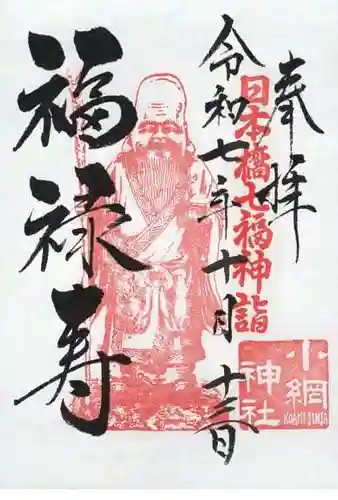 奉拝
日本橋七福神詣
令和七年十月十三日
福禄寿
小網
神社
KOAMI JINJA